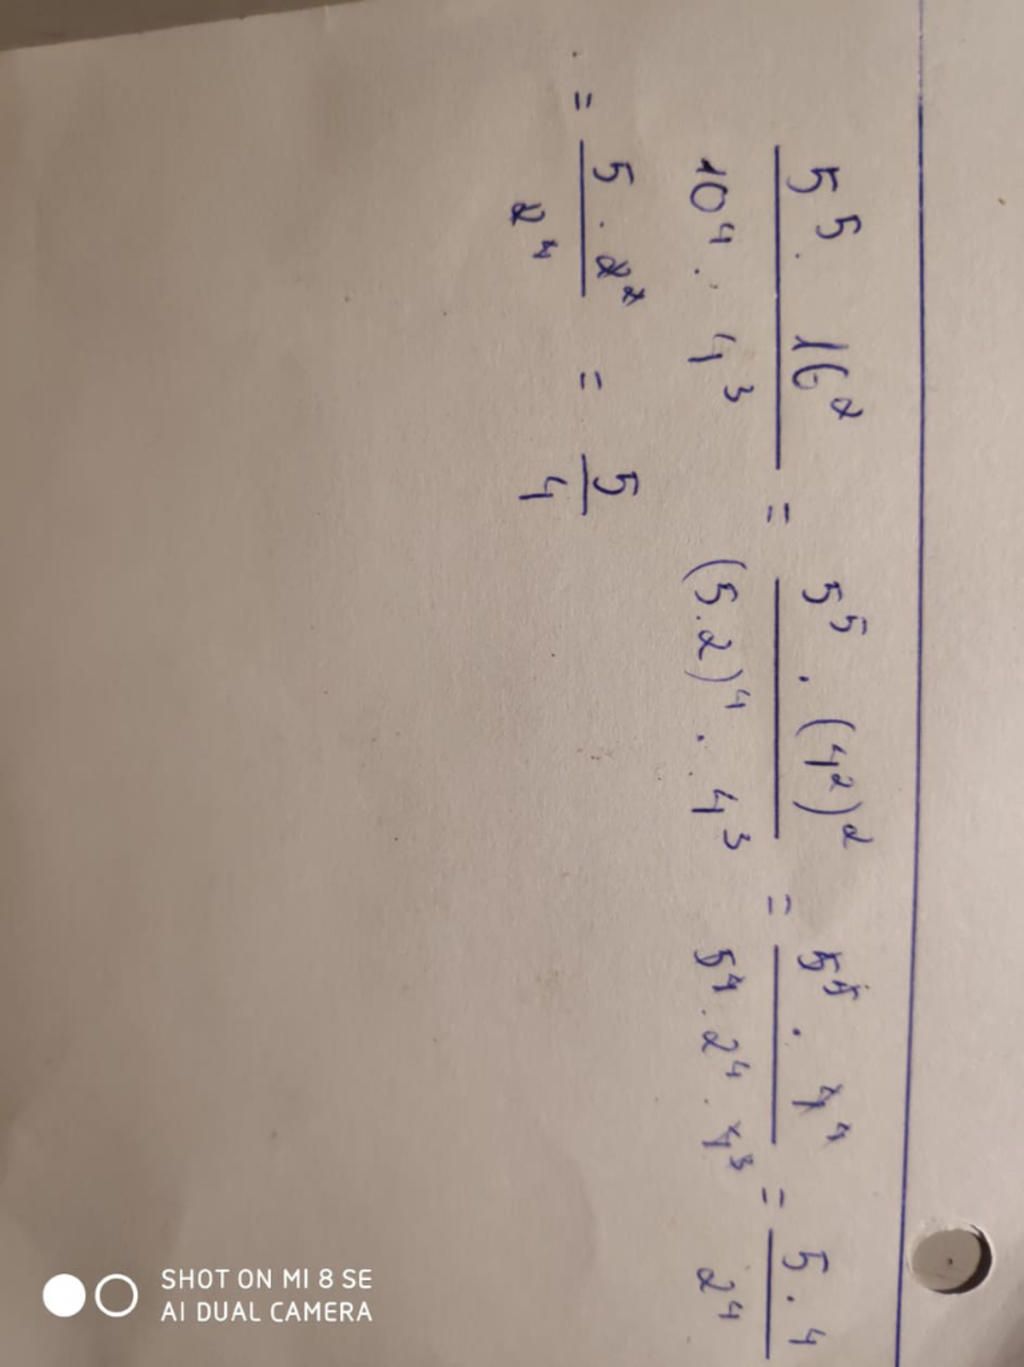 5⁵ · 16² / 10⁴ · 4³ = 5⁵ · (4²)² / (5·2)⁴ · 4³ = 5⁵ · 4⁴ / 5⁴ · 2⁴ · 4³ = 5 · 4 / 2⁴
= 5 · 2² / 2⁴ = 5 / 4
SHOT ON MI 8 SE
AI DUAL CAMERA